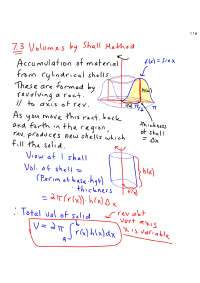 7.3 Volumes by Shell Method
Accumulation of material
from cylindrical shells.
These are formed by
revolving a rect.
// to axis of rev.
As you move this rect. back
and forth in the region,
rev. produces new shells which
fill the solid.
f(x) = sin x
h(x)
π
thickness
of shell
= Δx
View of 1 shell
Vol. of shell =
thickness
= 2π(r(x))·h(x)Δx
h(x)
r(x)
∴ Total vol of solid
V = 2π ∫ₐᵇ r(x)h(x)dx
rev abt
vert axis
x is variable